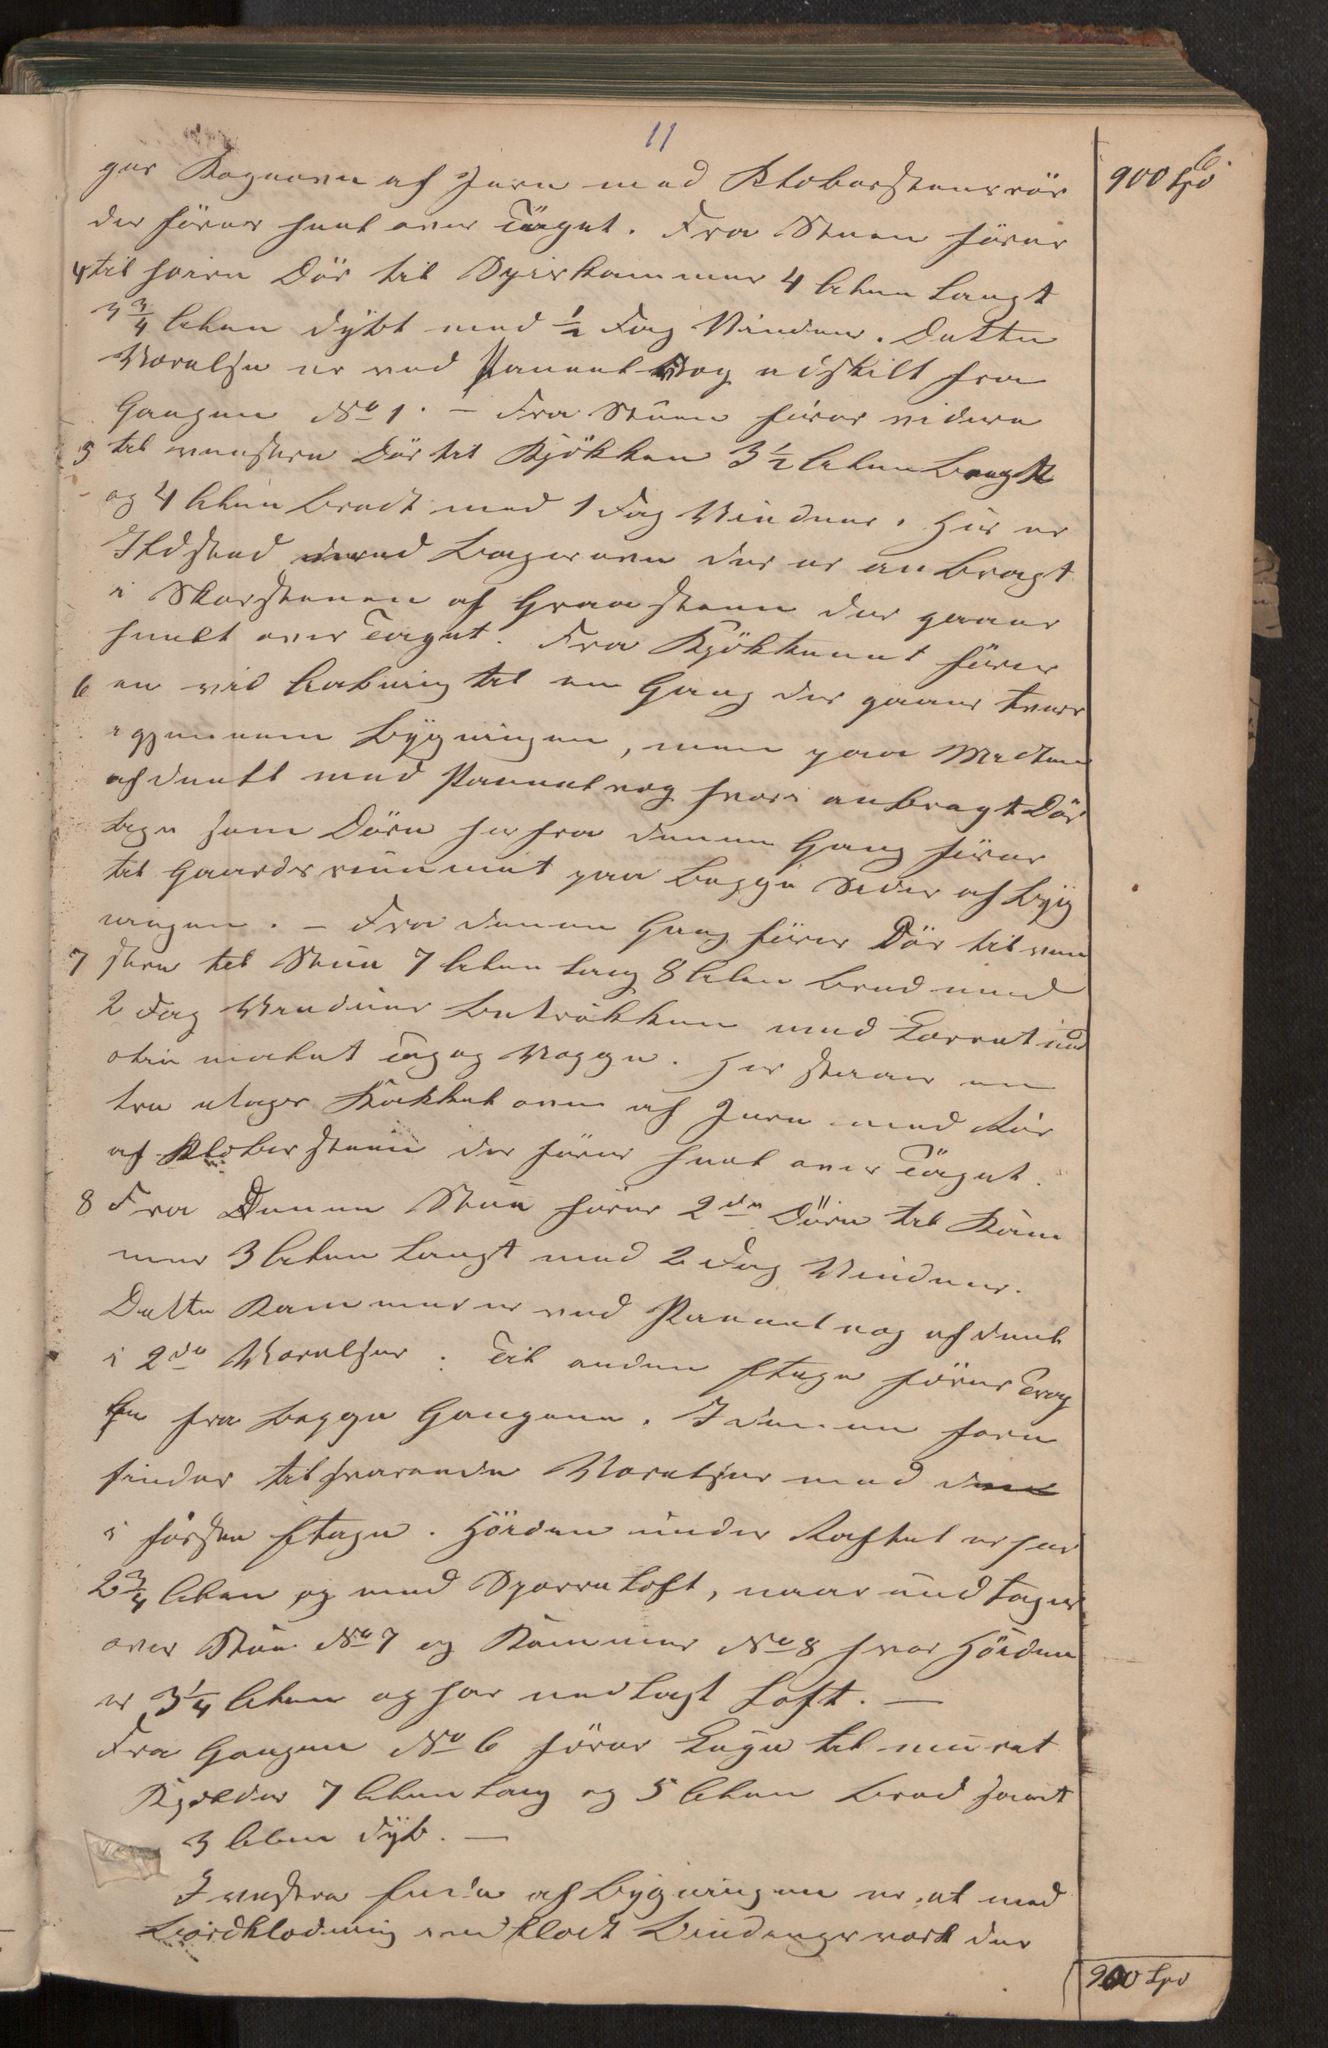 11
900 Spd
ger Kogeovn af Jern med Klebersteensrör
der förer heelt over Taget. Fra Stuen förer
4 til höire Dör til Spiskammer 4 Alen langt
3 3/4 Alen dybt med 1/2 Fag Vinduer. Dette
Værelse er ved Paneelvæg adskilt fra
Gangen No 1. – Fra Stuen förer videre
5 til venstre Dör til Kjökken 3 1/2 Alen langt
og 4 Alen bredt med 1 Fag Vinduer. Her er
Ildsted med Bagerovn der er anbragt
i Skorstenen af Graasteen der gaaer
heelt over Taget. Fra Kjökkenet förer
6 en vid Aabning til en Gang der gaaer tvers
igjennem Bygningen, men paa Midten
afdeelt med Paneelvæg hvori anbragt Dör
lige som Döre her fra denne Gang förer
til Gaardsrummet paa begge Sider af Byg
ningen. – Fra denne Gang förer Dör til ven
7 stre til Stue 7 Alen lang 8 Alen bred med
2 Fag Vinduer betrökken med Lærret und
olie malet Tag og Vægge. Her staaer en
tre etages Kakkelovn af Jern med Rör
af Klebersteen der förer heelt over Taget.
8 Fra Denne Stue förer 2de Döre til Kam
mer 3 Alen langt med 2 Fag Vinduer.
Dette Kammer er ved Paneelvæg afdeelt
i 2de Værelser. Til anden Etage förer Trap
per fra begge Gangene. I denne fore
findes tilsvarende Værelser med dem
i förste Etage. Höiden under Loftet er her
2 3/4 Alen og med Sperreloft, naar undtages
over Stue No 7 og Kammer No 8 hvor Höiden
er 3 1/4 Alen og har nedlagt Loft. –
Fra Gangen No 6 förer Luge til muret
Kjelder 7 Alen lang og 5 Alen bred samt
3 Alen dyb. –
I vestre Ende af Bygningen er et med
Bordklædning indklædt Bindingsværk der
900 Spd